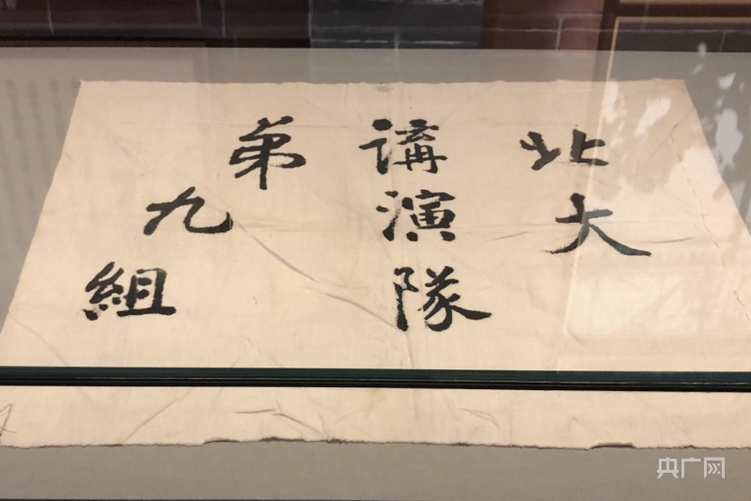 北大
講演隊
第九組
央广网